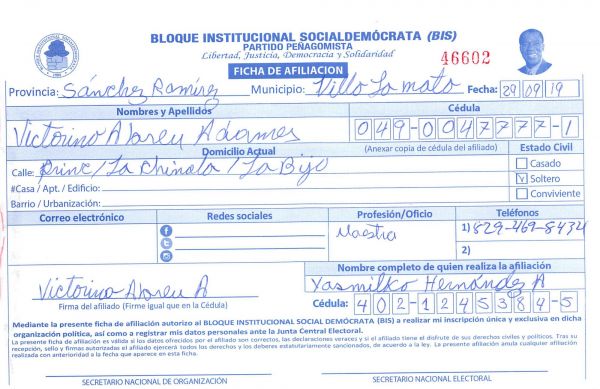 BLOQUE INSTITUCIONAL SOCIALDEMÓCRATA (BIS)
PARTIDO PEÑAGOMISTA
Libertad, Justicia, Democracia y Solidaridad
46602
FICHA DE AFILIACION
Provincia: Sánchez Ramírez Municipio: Villa La mata Fecha: 29/09/19
Nombres y Apellidos Cédula
Victorino Abreu Adames 049-0047777-1
Domicilio Actual (Anexar copia de cédula del afiliado) Estado Civil
Calle: Princ/La Chinata/La Bija Casado
#Casa / Apt. / Edificio: Soltero
Barrio / Urbanización: Conviviente
Correo electrónico Redes sociales Profesión/Oficio Teléfonos
Maestra 1) 829-469-8434
2)
Nombre completo de quien realiza la afiliación
Victorino Abreu A Yasmilko Hernández A
Firma del afiliado (Firme igual que en la Cédula) Cédula: 402-1245384-5
Mediante la presente ficha de afiliación autorizo al BLOQUE INSTITUCIONAL SOCIAL DEMÓCRATA (BIS) a realizar mi inscripción única y exclusiva en dicha
organización política, así como a registrar mis datos personales ante la Junta Central Electoral.
La presente ficha de afiliación es válida si los datos ofrecidos por el afiliado son correctos, las declaraciones veraces y si el afiliado tiene el disfrute de sus derechos civiles y políticos. Tras su
recepción, sello y firmas autorizadas el afiliado ejercerá todos los derechos y los deberes estatutariamente sancionados, de acuerdo a la ley. La presente afiliación anula cualquier afiliación
realizada con anterioridad a la fecha que aparece en esta ficha.
SECRETARIO NACIONAL DE ORGANIZACIÓN SECRETARIO NACIONAL DE ELECTORAL